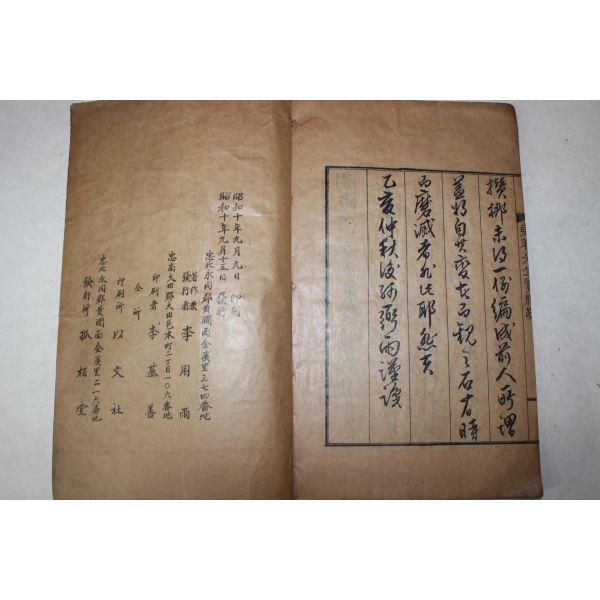 揆揶未得一例編成前人所謂
蓋將自其變者而觀之石有時
而磨滅者非此耶熙貞
乙亥仲秋後孫彌雨謹識
昭和十年九月九日 印刷
昭和十年九月十五日 發行
忠北永同郡黃澗面金溪里三七四番地
著作兼
發行者 李用雨
忠南大田郡大田邑本町二丁目一〇六番地
印刷者 李基善
仝所
印刷所 以文社
忠北永同郡黃澗面金溪里二一六番地
發行所 孤栢堂